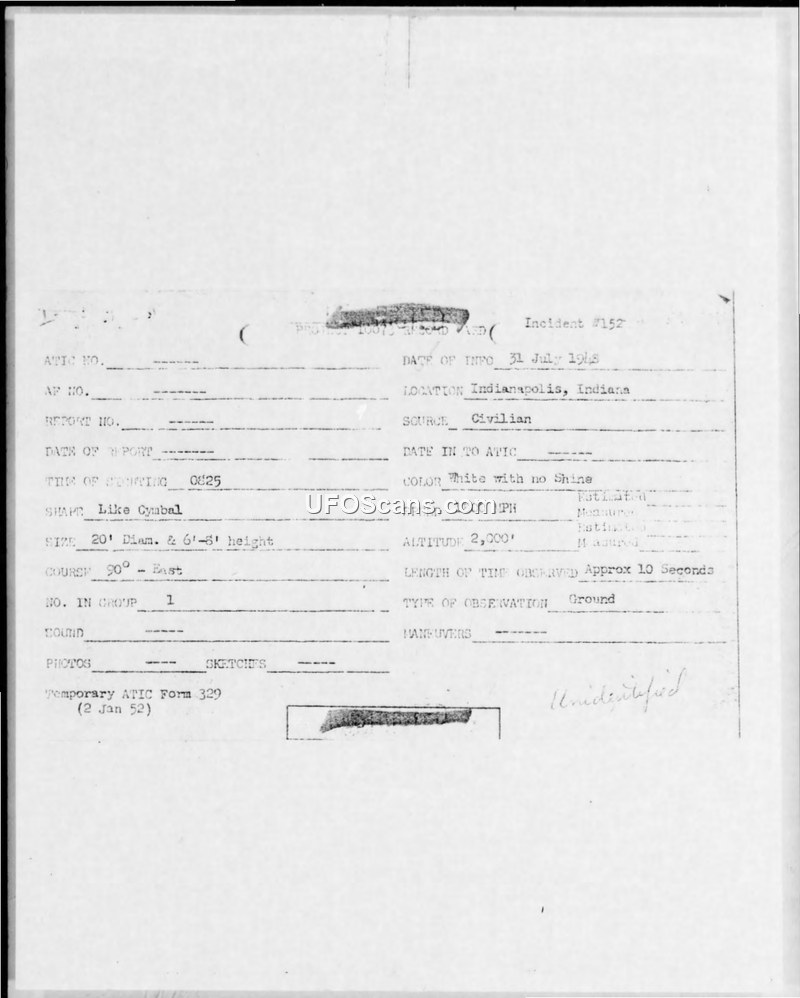 PROJECT 10073 RECORD CARD Incident #152
ATIC NO. ------ DATE OF INFO 31 July 1948
AF NO. ------- LOCATION Indianapolis, Indiana
REPORT NO. ------ SOURCE Civilian
DATE OF REPORT ------- DATE IN TO ATIC ------
TIME OF SIGHTING 0825 COLOR White with no Shine
SHAPE Like Cymbal MPH Estimated
Measured
UFOScans.com
SIZE 20' Diam. & 6'-8' height ALTITUDE 2,000' Estimated
Measured
COURSE 90° - East LENGTH OF TIME OBSERVED Approx 10 Seconds
NO. IN GROUP 1 TYPE OF OBSERVATION Ground
SOUND ----- MANEUVERS -------
PHOTOS ---- SKETCHES -----
Temporary ATIC Form 329
(2 Jan 52)
Unidentified